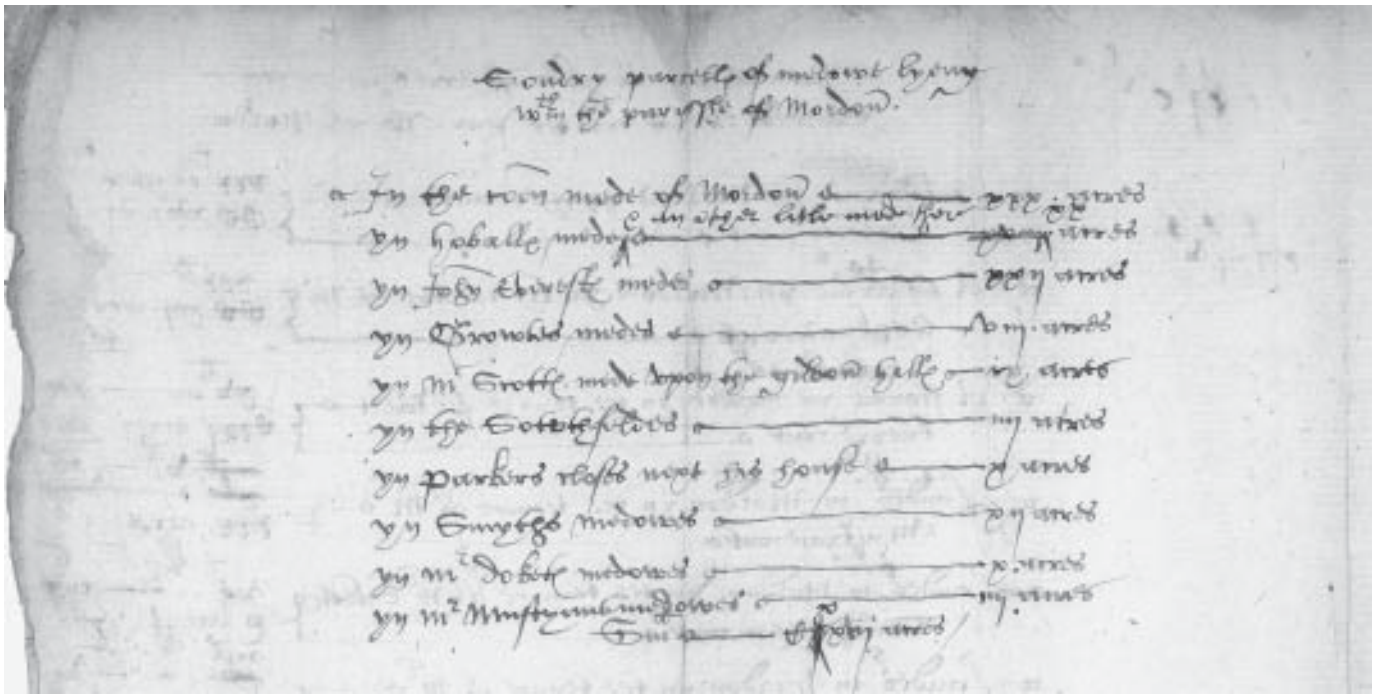 Sondry parcell of medowe lyeng
wtin the parisshe of Mordon.
In the coen mede of Mordon xxx. acres
& an other litle mede there
yn hoball medes xx acres
yn John medes xxij acres
yn Growtes medes viij. acres
yn Mr Scott mede upon the hall ix acres
yn the Sowthfeldes iiij acres
yn Parkers closes next his house x acres
yn Smyths medowes xij acres
yn Mr dobett medowes x. acres
yn Mr medowes iij acres
Sma acres